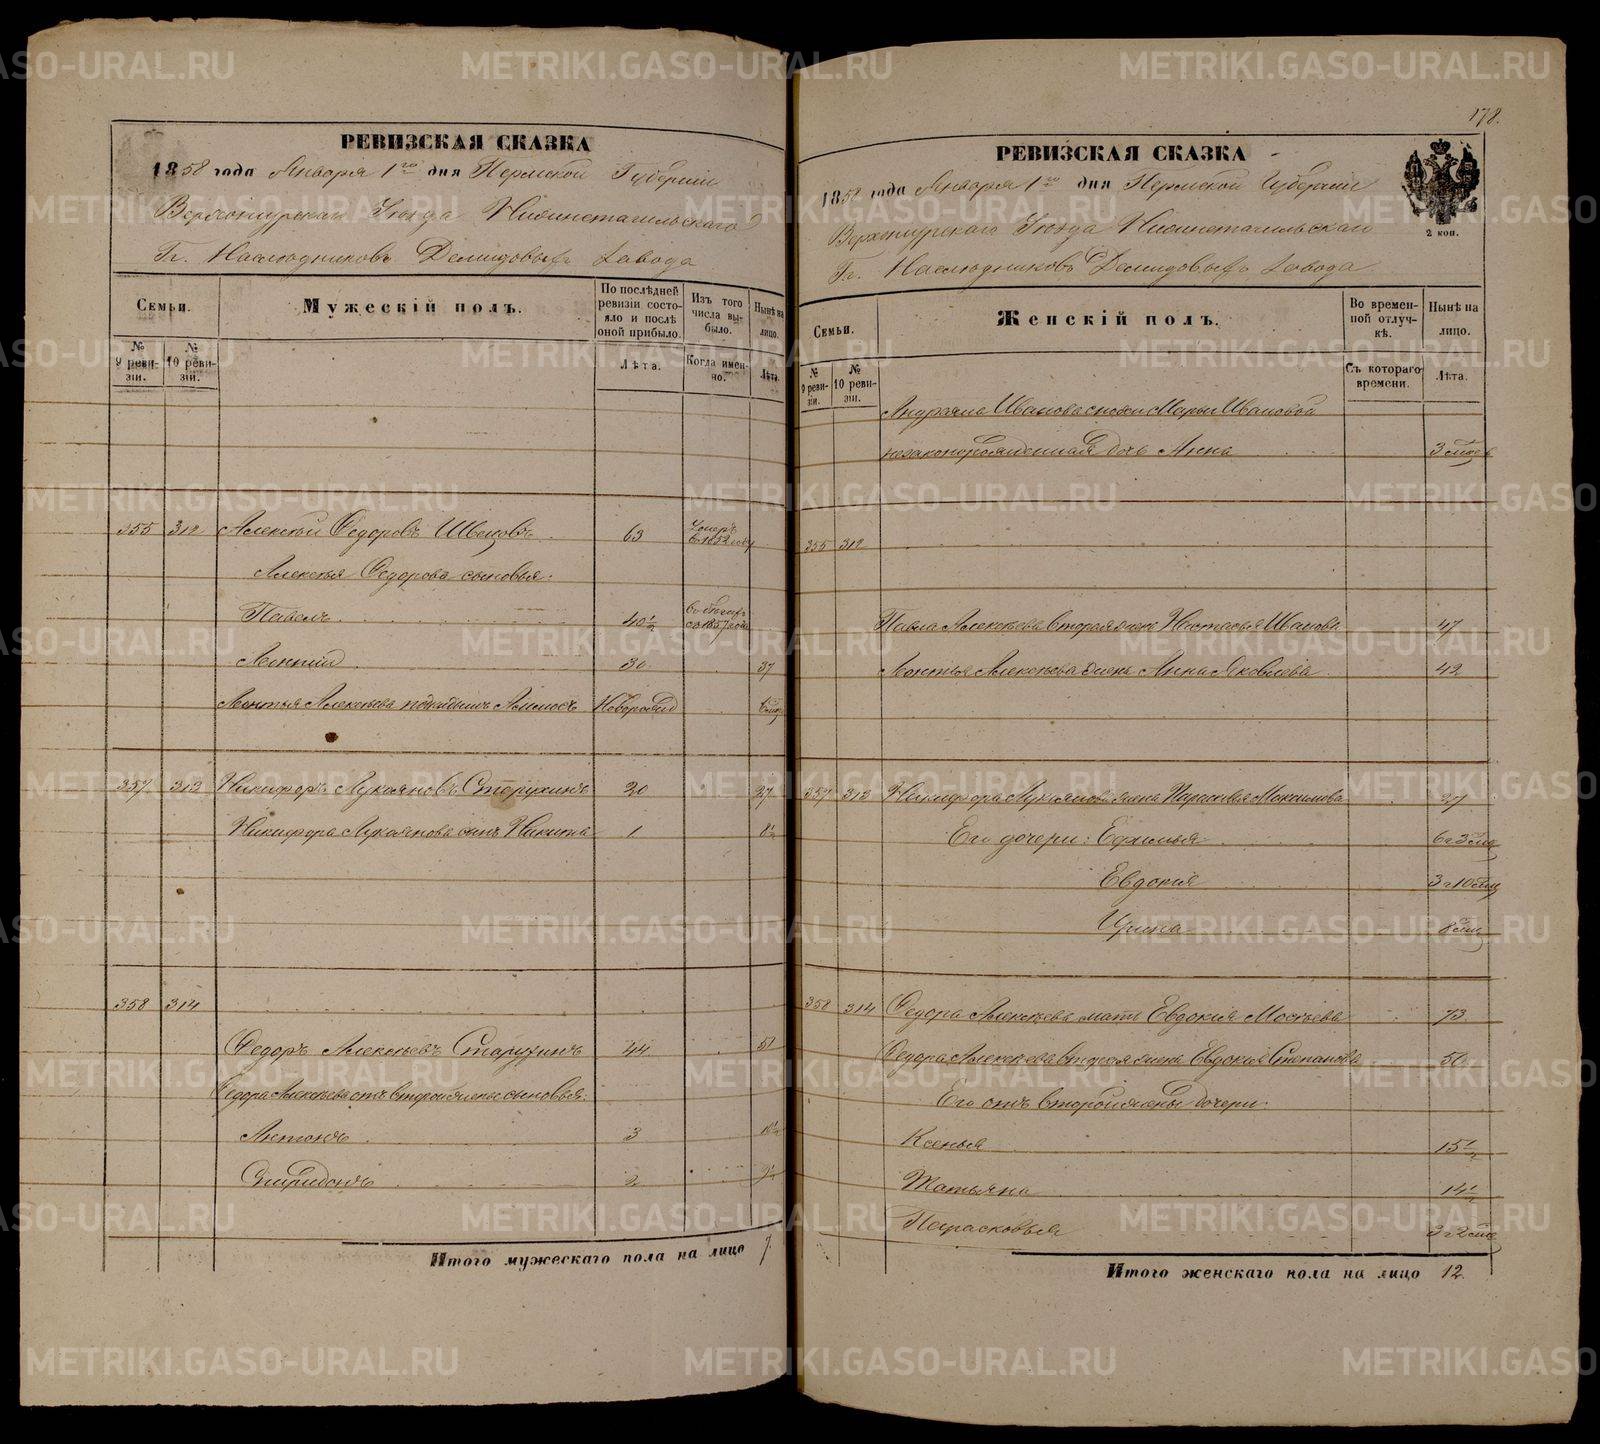 РЕВИЗСКАЯ СКАЗКА
1858 года Января 1го дня Пермской Губернии
Верхотурскаго Уѣзда Нижнетагильскаго
Гг. Наслѣдниковъ Демидовыхъ Завода
Семьи.
№ 9 ревизіи.
№ 10 ревизіи.
Мужескій полъ.
По послѣдней ревизіи состояло и послѣ оной прибыло.
Лѣта.
Изъ того числа выбыло.
Когда именно.
Нынѣ на лицо.
Лѣта.
355 312 Алексѣй Ѳедоровъ Швецовъ 63 Умеръ въ 1852 году
Алексѣя Ѳедорова сыновья:
Павелъ 40½ въ бѣгахъ съ 1857 года
Леонтій 30 37
Леонтья Алексѣева Новорожд
357 313 Никифоръ Лукояновъ Старухинъ 20 27
Никифора Лукоянова сынъ Никита 1 8½
358 314
Ѳедоръ Алексѣевъ Старухинъ 44 51
Ѳедора Алексѣева отъ второй жены сыновья:
Антонъ 3 10½
Спиридонъ 2 9½
Итого мужескаго пола на лицо 7.
178.
РЕВИЗСКАЯ СКАЗКА
1858 года Января 1го дня Пермской Губерніи
Верхотурскаго Уѣзда Нижнетагильскаго
Гг. Наслѣдниковъ Демидовыхъ Завода
2 коп.
Семьи.
№ 9 ревизіи.
№ 10 ревизіи.
Женскій полъ.
Во временной отлучкѣ.
Съ котораго времени.
Нынѣ на лицо.
Лѣта.
Ивановой
незаконорожденная дочь Анна 3 мѣс
355 312
Павла Алексѣева вторая жена Настасья Иванова 47
Леонтья Алексѣева жена Анна Яковлева 42
357 313 Никифора Лукоянова жена Парасковья Максимова 27
Его дочери: Ефимья 6 г 3 мѣс
Евдокія 3 г 10 мѣс
Ирина 8 мѣс
358 314 Ѳедора Алексѣева мать Евдокія Мосѣева 73
Ѳедора Алексѣева вторая жена Евдокія Степанова 50
Его отъ второй жены дочери:
Ксенья 15½
Татьяна 14½
Парасковья 3 г 2 мѣс
Итого женскаго пола на лицо 12.
METRIKI.GASO-URAL.RU